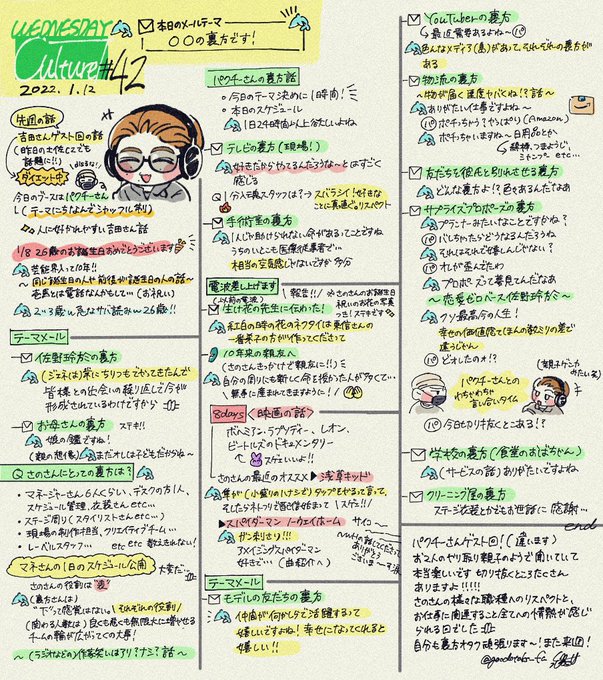 WEDNESDAY
Culture!
#42
2022.1.12
本日のメールテーマ
〇〇の裏方です!
先週の話
吉田さんゲスト回の話
(昨日の土佐にでも
話題に!!)
ダイエット中
今日のブースはパクチーさん
(テーマにちなんでシャッフル制)
人に好かれやすい吉田さん話
1/8 26歳のお誕生日おめでとうございます
芸能界入って10年!!
〜同じ誕生日の人や前後が誕生日の人の話
壱馬とは電話なんかもして… (お祝い)
26歳!!
テーマメール
佐野玲於の裏方
皆様との出会いの繰り返しで今が
形成されているわけですから
お母さんの裏方 ステキ!!
娘の鑑ですね!
(親の想像)まだオレは子どもだからな〜
Q さのさんにとっての裏方は?
・マネージャーさん6人くらい、デスクの方1人、
スケジュール管理、衣装さん etc…
・ステージ周り(スタイリストさん etc…)
・現場の制作担当、クリエイティブチーム…
・レーベルスタッフ… etc etc 数えきれない!
マネさんの1日のスケジュール公開 大変だ…
さのさんの役割は"表"
(裏方さんは)
"下"って感覚はない。それぞれの役割!
(関わる人数は)良くも悪くも無限大に増やせる
チームの輪が広がってくの大事!
〜(ラジオなどの)作家笑いはアリ?ナシ?話〜
パクチーさんの裏方話
○今日のテーマ決めに1時間!
○本日のスケジュール
1日24時間以上分だしいよね
テレビの裏方(現場!)
好きだからやってるんだろうな〜とはすごく
感じる
手術室の裏方
1人じゃ助けられない命があってことですね
うちのいとこも医療従事者で…
相当の空気感じゃないですか多分
電波差し上げます
(以前の電波)
報告!!
生け花の先生に伝わった!
紅白の時の花のネクタイは東信さんの
一番弟子の方が作ってくださって
10年来の親友へ
(さのさんきっかけで親友に!!)
自分の周りにも新しく命を授かった人が多くて…
無事に産まれてきますように!
8days 〈映画の話〉
ボヘミアン・ラプソディー、レオン、
ビートルズのドキュメンタリー
ゲスいいよ!!
さのさんの最近のオススメ ▶ 浅草キッド
▶スパイダーマン ノーウェイホーム
ガン刺さり!!!
アメイジングスパイダーマン
好きで… (曲紹介へ)
テーマメール
モデルの友だちの裏方
仲間が何かしらで活躍するって
嬉しいですよね! 幸せになってくれると
嬉しい!!
YouTuberの裏方
最近需要あるよね〜
色んなメディア(業)があって、それぞれの裏方が
ある
物流の裏方
〜物が届く速度ヤバくね!?話〜
ありがたい仕事ですよね〜
ポチっちゃう?やっぱり(Amazon)
ポチっちゃいますね〜日用品とか
綿棒、つまようじ、
シャンプー etc…
友だちを彼氏と別れさせる裏方
どんな裏方よ!?色々あるんだなあ
サプライズプロポーズの裏方
プランナーみたいなことですかね?
バレちゃったらどうなるんだろうね
それはそれで嬉しんじゃない?
オレが歪んでたわ
プロポーズって夢見てんだなあ
〜恋愛ゼロベース佐野玲於〜
クソ最高今の人生!
幸せの価値観てほんの数ミリの差で
違うじゃん
どオレたのォ!?
パクチーさんとの
わちゃわちゃ
言い合いタイム
(親子ゲンカ
みたいな)
今日切り抜くとこある!?
学校の裏方 (食堂のおばちゃん)
(サービスの話)ありがたいですよね
クリーニング屋の裏方
ステージ衣装とかでもお世話に 感謝…
end
パクチーさんゲスト回!(違います)
お2人のやり取り親子のようで聞いていて
本当楽しいです 切り抜くとこたくさん
ありますよ!!!!!
さのさんの様々な職種へのリスペクトと、
お仕事に関連すること全てへの情熱が感じ
られる回でした
自分も裏方オタク頑張ります〜!また来週!